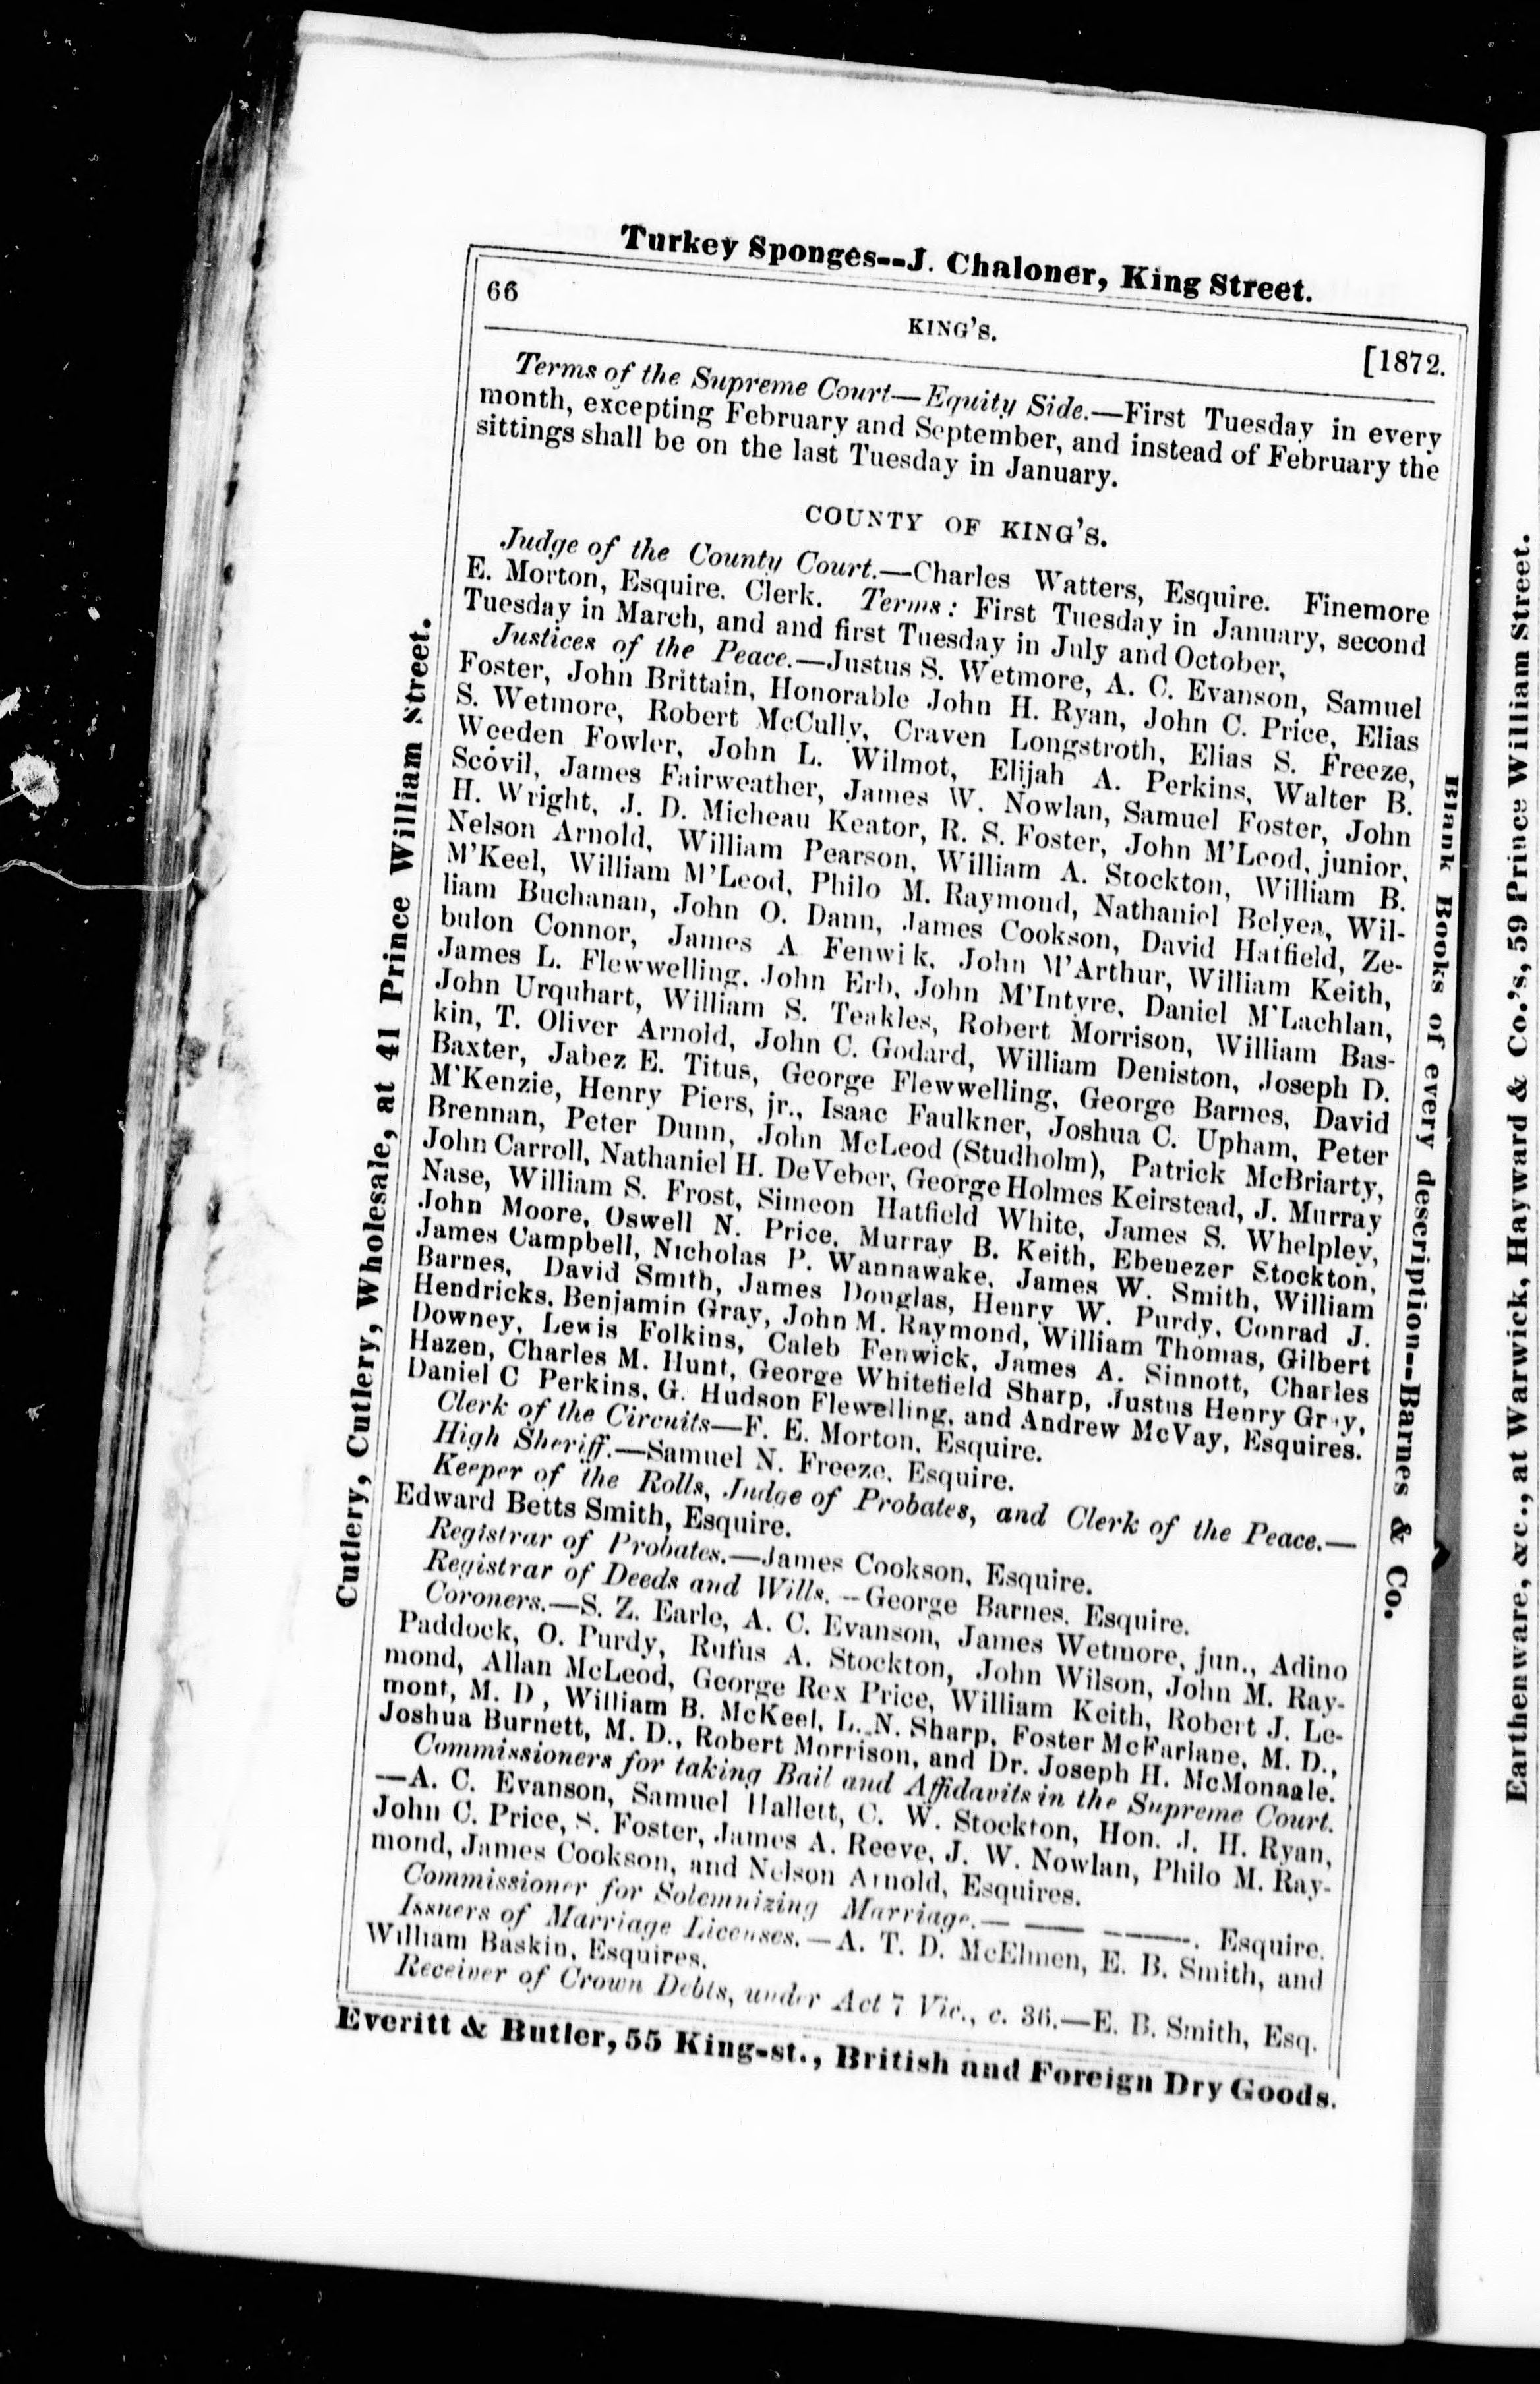 Turkey Sponges--J. Chaloner, King Street.
66
KING'S.
[1872.
Terms of the Supreme Court—Equity Side.—First Tuesday in every
month, excepting February and September, and instead of February the
sittings shall be on the last Tuesday in January.
COUNTY OF KING'S.
Judge of the County Court.—Charles Watters, Esquire. Finemore
E. Morton, Esquire. Clerk. Terms: First Tuesday in January, second
Tuesday in March, and and first Tuesday in July and October,
Justices of the Peace.—Justus S. Wetmore, A. C. Evanson, Samuel
Foster, John Brittain, Honorable John H. Ryan, John C. Price, Elias
S. Wetmore, Robert McCully, Craven Longstroth, Elias S. Freeze,
Weeden Fowler, John L. Wilmot, Elijah A. Perkins, Walter B.
Scovil, James Fairweather, James W. Nowlan, Samuel Foster, John
H. Wright, J. D. Micheau Keator, R. S. Foster, John M'Leod, junior,
Nelson Arnold, William Pearson, William A. Stockton, William B.
M'Keel, William M'Leod, Philo M. Raymond, Nathaniel Belyea, Wil-
liam Buchanan, John O. Dann, James Cookson, David Hatfield, Ze-
bulon Connor, James A Fenwi k, John M'Arthur, William Keith,
James L. Flewwelling, John Erb, John M'Intyre, Daniel M'Lachlan,
John Urquhart, William S. Teakles, Robert Morrison, William Bas-
kin, T. Oliver Arnold, John C. Godard, William Deniston, Joseph D.
Baxter, Jabez E. Titus, George Flewwelling, George Barnes, David
M'Kenzie, Henry Piers, jr., Isaac Faulkner, Joshua C. Upham, Peter
Brennan, Peter Dunn, John McLeod (Studholm), Patrick McBriarty,
John Carroll, Nathaniel H. DeVeber, George Holmes Keirstead, J. Murray
Nase, William S. Frost, Simeon Hatfield White, James S. Whelpley,
John Moore, Oswell N. Price, Murray B. Keith, Ebenezer Stockton,
James Campbell, Nicholas P. Wannawake, James W. Smith, William
Barnes, David Smith, James Douglas, Henry W. Purdy, Conrad J.
Hendricks, Benjamin Gray, John M. Raymond, William Thomas, Gilbert
Downey, Lewis Folkins, Caleb Fenwick, James A. Sinnott, Charles
Hazen, Charles M. Hunt, George Whitefield Sharp, Justus Henry Gr y,
Daniel C Perkins, G. Hudson Flewelling, and Andrew McVay, Esquires.
Clerk of the Circuits—F. E. Morton, Esquire.
High Sheriff.—Samuel N. Freeze, Esquire.
Keeper of the Rolls, Judge of Probates, and Clerk of the Peace.—
Edward Betts Smith, Esquire.
Registrar of Probates.—James Cookson, Esquire.
Registrar of Deeds and Wills.—George Barnes, Esquire.
Coroners.—S. Z. Earle, A. C. Evanson, James Wetmore, jun., Adino
Paddock, O. Purdy, Rufus A. Stockton, John Wilson, John M. Ray-
mond, Allan McLeod, George Rex Price, William Keith, Robert J. Le-
mont, M. D , William B. McKeel, L. N. Sharp, Foster McFarlane, M. D.,
Joshua Burnett, M. D., Robert Morrison, and Dr. Joseph H. McMonagle.
Commissioners for taking Bail and Affidavits in the Supreme Court.
—A. C. Evanson, Samuel Hallett, C. W. Stockton, Hon. J. H. Ryan,
John C. Price, S. Foster, James A. Reeve, J. W. Nowlan, Philo M. Ray-
mond, James Cookson, and Nelson Arnold, Esquires.
Commissioner for Solemnizing Marriage.— —— ———. Esquire.
Issuers of Marriage Licenses.—A. T. D. McElmen, E. B. Smith, and
William Baskin, Esquires.
Receiver of Crown Debts, under Act 7 Vic., c. 36.—E. B. Smith, Esq.
Everitt & Butler, 55 King-st., British and Foreign Dry Goods.
Cutlery, Cutlery, Wholesale, at 41 Prince William Street.
Blank Books of every description--Barnes & Co.
Earthenware, &c., at Warwick, Hayward & Co.'s, 59 Prince William Street.